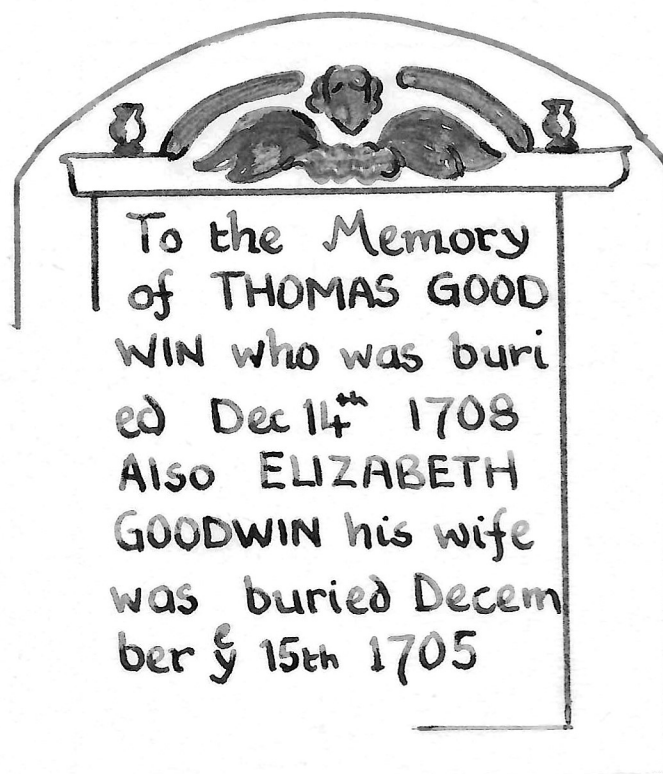 To the Memory
of THOMAS GOOD
WIN who was buri
ed Dec 14th 1708
Also ELIZABETH
GOODWIN his wife
was buried Decem
ber ye 15th 1705